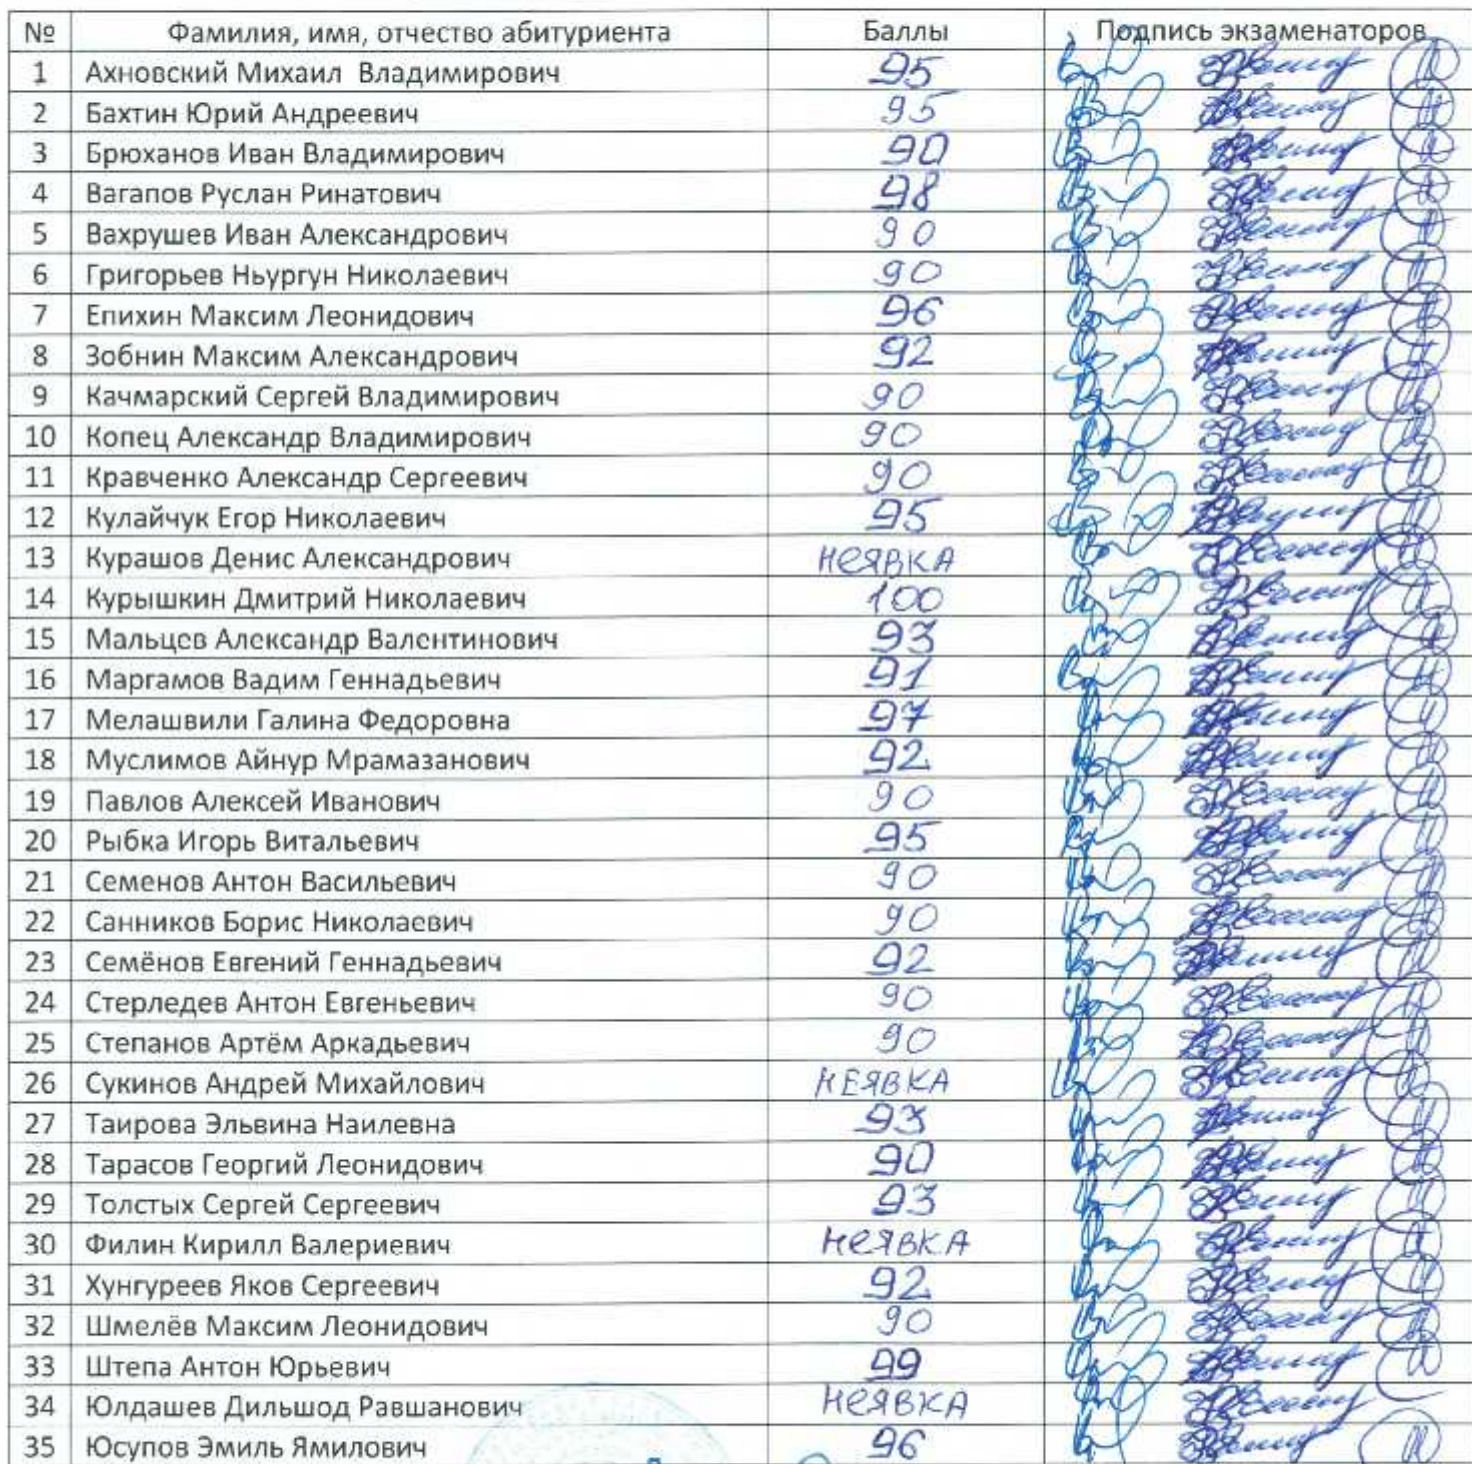 № Фамилия, имя, отчество абитуриента Баллы Подпись экзаменаторов
1 Ахновский Михаил Владимирович 95
2 Бахтин Юрий Андреевич 95
3 Брюханов Иван Владимирович 90
4 Вагапов Руслан Ринатович 98
5 Вахрушев Иван Александрович 90
6 Григорьев Ньургун Николаевич 90
7 Епихин Максим Леонидович 96
8 Зобнин Максим Александрович 92
9 Качмарский Сергей Владимирович 90
10 Копец Александр Владимирович 90
11 Кравченко Александр Сергеевич 90
12 Кулайчук Егор Николаевич 95
13 Курашов Денис Александрович неявка
14 Курышкин Дмитрий Николаевич 100
15 Мальцев Александр Валентинович 93
16 Маргамов Вадим Геннадьевич 91
17 Мелашвили Галина Федоровна 97
18 Муслимов Айнур Мрамазанович 92
19 Павлов Алексей Иванович 90
20 Рыбка Игорь Витальевич 95
21 Семенов Антон Васильевич 90
22 Санников Борис Николаевич 90
23 Семёнов Евгений Геннадьевич 92
24 Стерледев Антон Евгеньевич 90
25 Степанов Артём Аркадьевич 90
26 Сукинов Андрей Михайлович НЕЯВКА
27 Таирова Эльвина Наилевна 93
28 Тарасов Георгий Леонидович 90
29 Толстых Сергей Сергеевич 93
30 Филин Кирилл Валериевич неявка
31 Хунгуреев Яков Сергеевич 92
32 Шмелёв Максим Леонидович 90
33 Штепа Антон Юрьевич 99
34 Юлдашев Дильшод Равшанович неявка
35 Юсупов Эмиль Ямилович 96